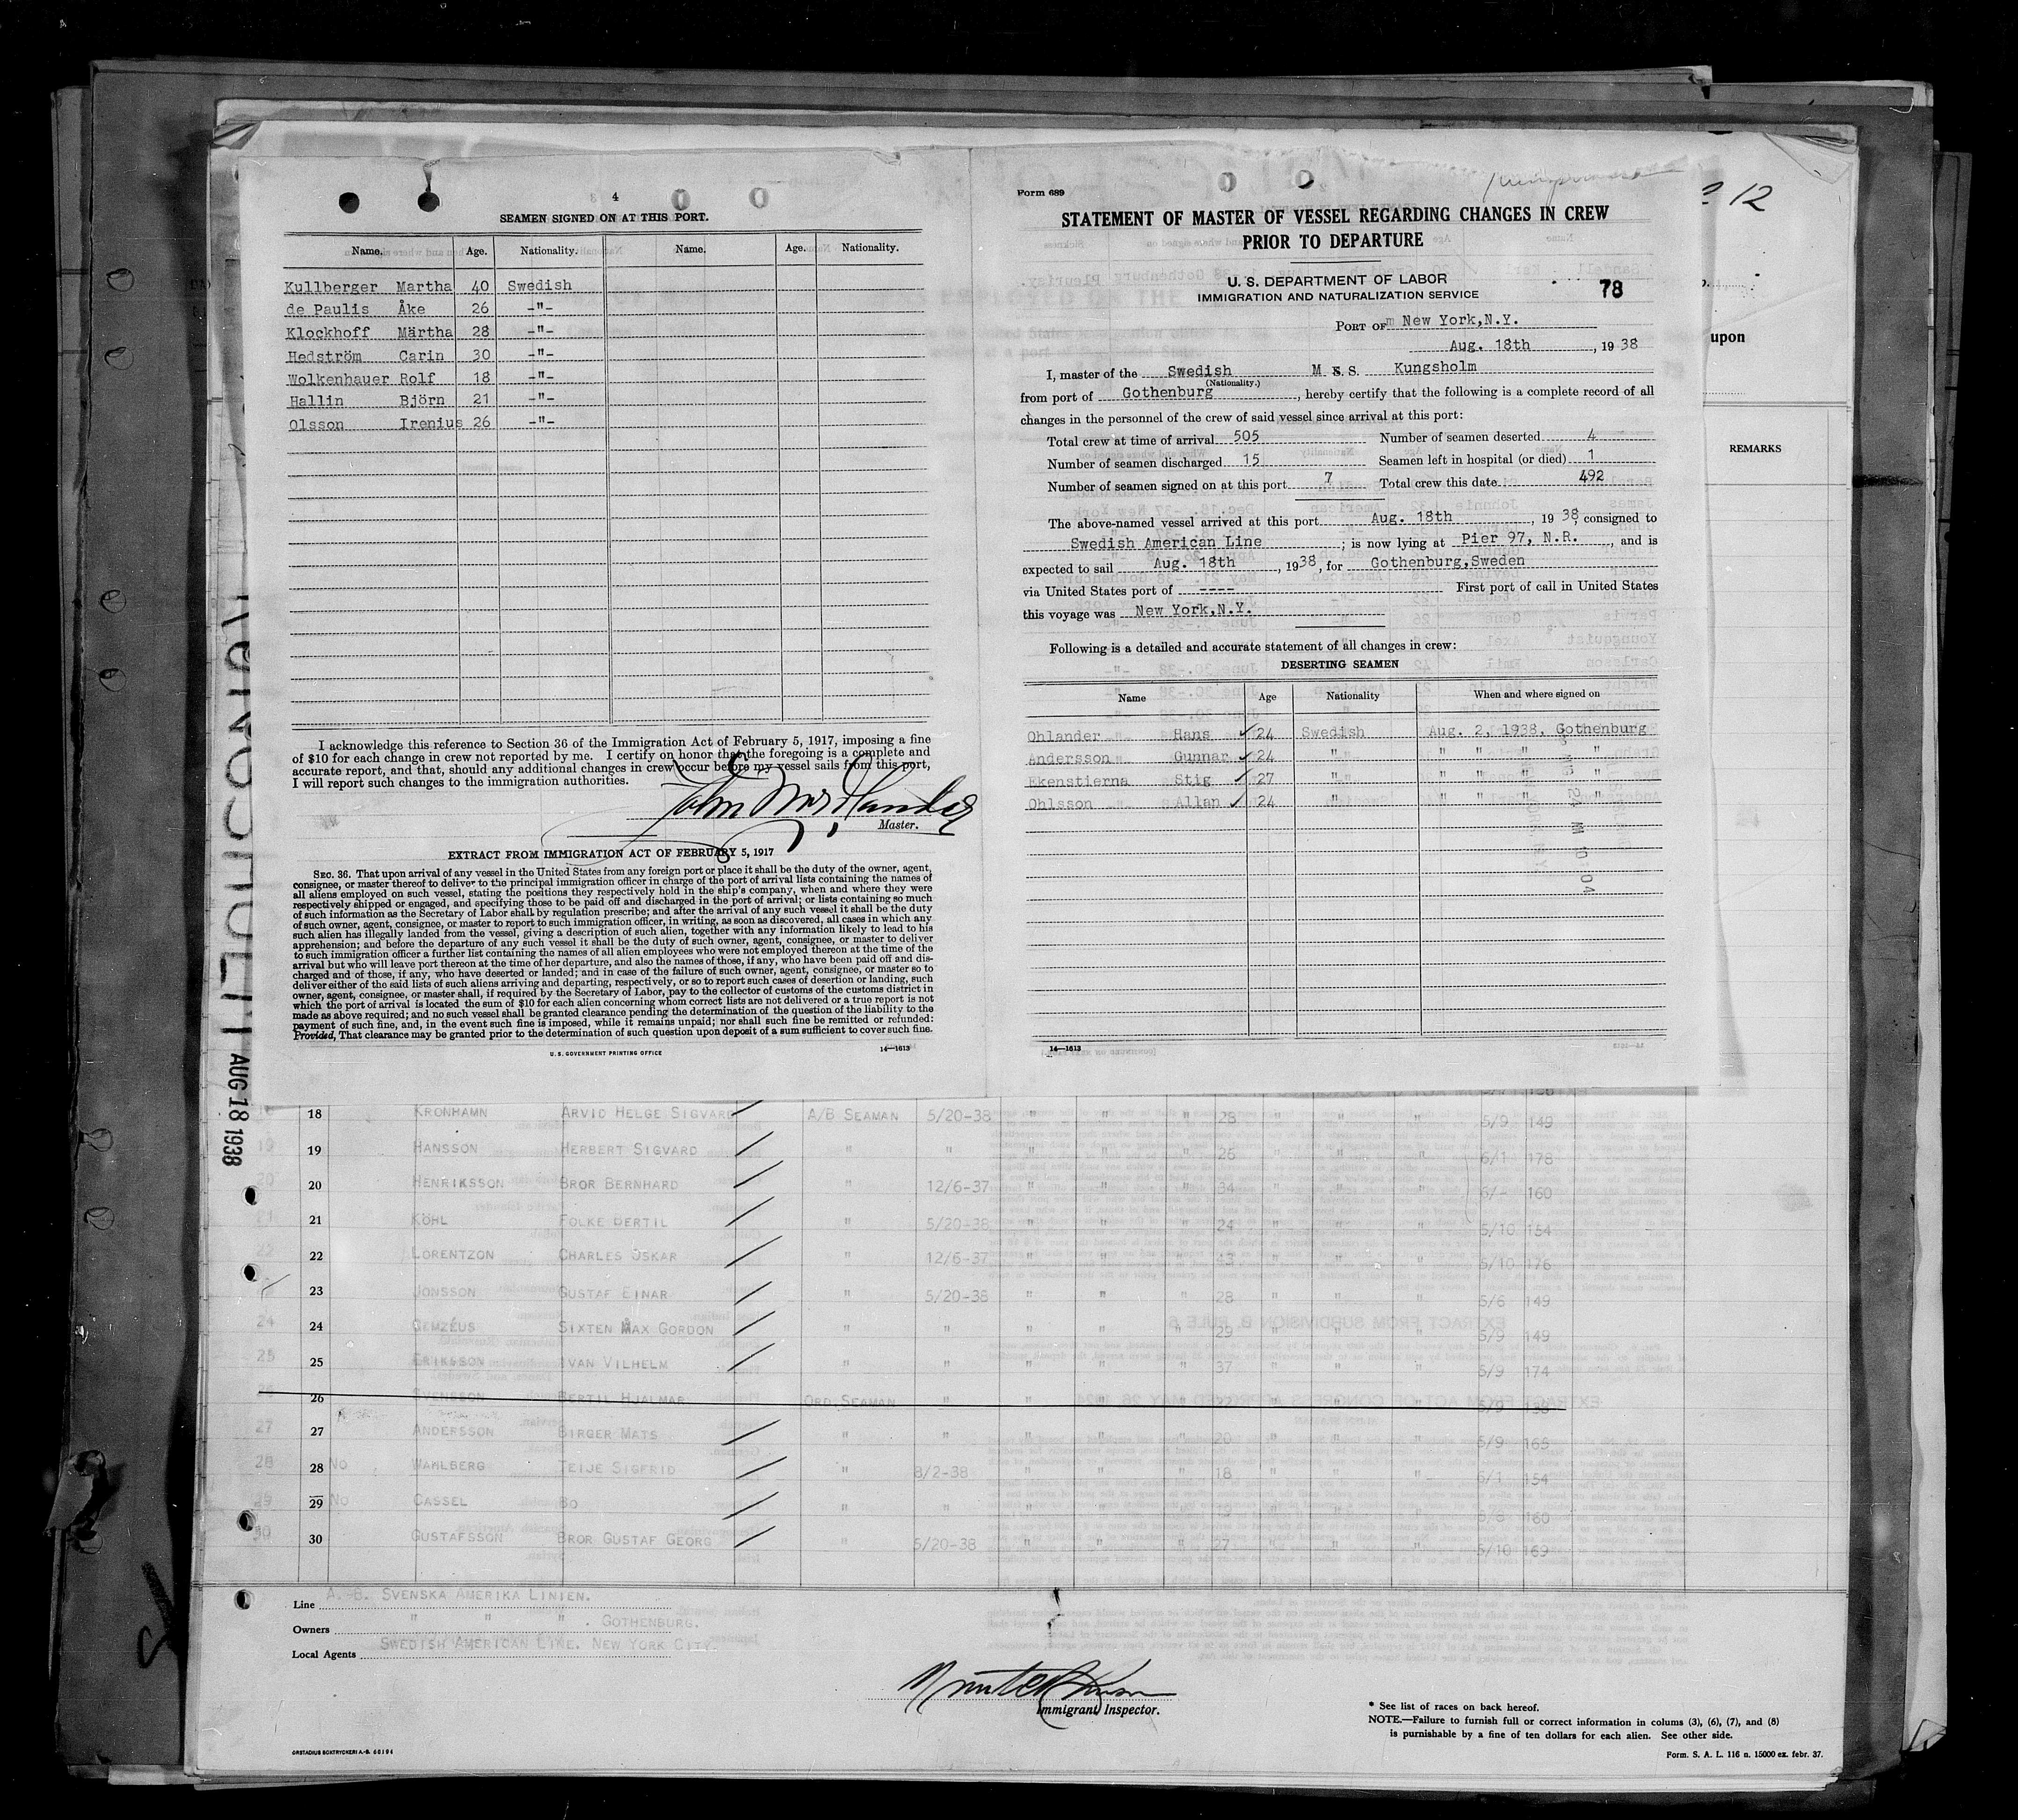 4
SEAMEN SIGNED ON AT THIS PORT.
Name. Age. Nationality. Name. Age. Nationality.
Kullberger Martha 40 Swedish
de Paulis Åke 26 -"-
Klockhoff Märtha 28 -"-
Hedström Carin 30 -"-
Wolkenhauer Rolf 18 -"-
Hallin Björn 21 -"-
Olsson Irenius 26 -"-
I acknowledge this reference to Section 36 of the Immigration Act of February 5, 1917, imposing a fine
of $10 for each change in crew not reported by me. I certify on honor that the foregoing is a complete and
accurate report, and that, should any additional changes in crew occur before my vessel sails from this port,
I will report such changes to the immigration authorities.
Master.
EXTRACT FROM IMMIGRATION ACT OF FEBRUARY 5, 1917
SEC. 36. That upon arrival of any vessel in the United States from any foreign port or place it shall be the duty of the owner, agent,
consignee, or master thereof to deliver to the principal immigration officer in charge of the port of arrival lists containing the names of
all aliens employed on such vessel, stating the positions they respectively hold in the ship's company, when and where they were
respectively shipped or engaged, and specifying those to be paid off and discharged in the port of arrival; or lists containing so much
of such information as the Secretary of Labor shall by regulation prescribe; and after the arrival of any such vessel it shall be the duty
of such owner, agent, consignee, or master to report to such immigration officer, in writing, as soon as discovered, all cases in which any
such alien has illegally landed from the vessel, giving a description of such alien, together with any information likely to lead to his
apprehension; and before the departure of any such vessel it shall be the duty of such owner, agent, consignee, or master to deliver
to such immigration officer a further list containing the names of all alien employees who were not employed thereon at the time of the
arrival but who will leave port thereon at the time of her departure, and also the names of those, if any, who have been paid off and dis-
charged and of those, if any, who have deserted or landed; and in case of the failure of such owner, agent, consignee, or master so to
deliver either of the said lists of such aliens arriving and departing, respectively, or so to report such cases of desertion or landing, such
owner, agent, consignee, or master shall, if required by the Secretary of Labor, pay to the collector of customs of the customs district in
which the port of arrival is located the sum of $10 for each alien concerning whom correct lists are not delivered or a true report is not
made as above required; and no such vessel shall be granted clearance pending the determination of the question of the liability to the
payment of such fine, and, in the event such fine is imposed, while it remains unpaid; nor shall such fine be remitted or refunded:
Provided, That clearance may be granted prior to the determination of such question upon deposit of a sum sufficient to cover such fine.
U. S. GOVERNMENT PRINTING OFFICE 14—1613
Form 689
STATEMENT OF MASTER OF VESSEL REGARDING CHANGES IN CREW
PRIOR TO DEPARTURE
U. S. DEPARTMENT OF LABOR
IMMIGRATION AND NATURALIZATION SERVICE
78
PORT OF New York,N.Y.
Aug. 18th, 1938
I, master of the Swedish M S. Kungsholm
(Nationality.)
from port of Gothenburg, hereby certify that the following is a complete record of all
changes in the personnel of the crew of said vessel since arrival at this port:
Total crew at time of arrival 505 Number of seamen deserted 4
Number of seamen discharged 15 Seamen left in hospital (or died) 1
Number of seamen signed on at this port 7 Total crew this date 492
The above-named vessel arrived at this port Aug. 18th, 1938, consigned to
Swedish American Line; is now lying at Pier 97, N.R., and is
expected to sail Aug. 18th, 1938, for Gothenburg,Sweden
via United States port of ---- First port of call in United States
this voyage was New York,N.Y.
Following is a detailed and accurate statement of all changes in crew:
DESERTING SEAMEN
Name Age Nationality When and where signed on
Ohlander Hans ✓ 24 Swedish Aug. 2, 1938, Gothenburg
Andersson Gunnar ✓ 24 " " " " "
Ekenstierna Stig ✓ 27 " " " " "
Ohlsson Allan ✓ 24 " " " " "
14—1613
12
upon
REMARKS
KUNGSHOLM AUG 18 1938
18 KRONHAMN ARVID HELGE SIGVARD A/B SEAMAN 5/20-38 " " " 28 " " " 5/9 149
19 HANSSON HERBERT SIGVARD " " " " " 25 " " " 6/1 178
20 HENRIKSSON BROR BERNHARD " 12/6-37 " " " 34 " " " 6/- 160
21 KÖHL FOLKE BERTIL " 5/20-38 " " " 24 " " " 5/10 154
22 LORENTZON CHARLES OSKAR " 12/6-37 " " " 43 " " " 5/10 176
23 JONSSON GUSTAF EINAR " 5/20-38 " " " 28 " " " 5/6 149
24 GEMZÉUS SIXTEN MAX GORDON " " " " " 29 " " " 5/9 149
25 ERIKSSON IVAN VILHELM " " " " " 37 " " " 5/9 174
26 SVENSSON BERTIL HJALMAR ORD.SEAMAN " " " " 22 " " " 5/9 138
27 ANDERSSON BIRGER MATS " " " " " 20 " " " 5/9 165
28 NO WAHLBERG TEIJE SIGFRID " 8/2-38 " " " 18 " " " 6/1 154
29 NO CASSEL BO " " " " " 19 " " " 5/8 160
30 GUSTAFSSON BROR GUSTAF GEORG " 5/20-38 " " " 27 " " " 5/10 169
Line A.-B. SVENSKA AMERIKA LINIEN.
Owners " " " . GOTHENBURG.
Local Agents SWEDISH AMERICAN LINE. NEW YORK CITY.
Immigrant Inspector.
* See list of races on back hereof.
NOTE.—Failure to furnish full or correct information in colums (3), (6), (7), and (8)
is punishable by a fine of ten dollars for each alien. See other side.
ORSTADIUS BOKTRYCKERI A.-B. 66194
Form. S. A. L. 116 n. 15000 ex. febr. 37.